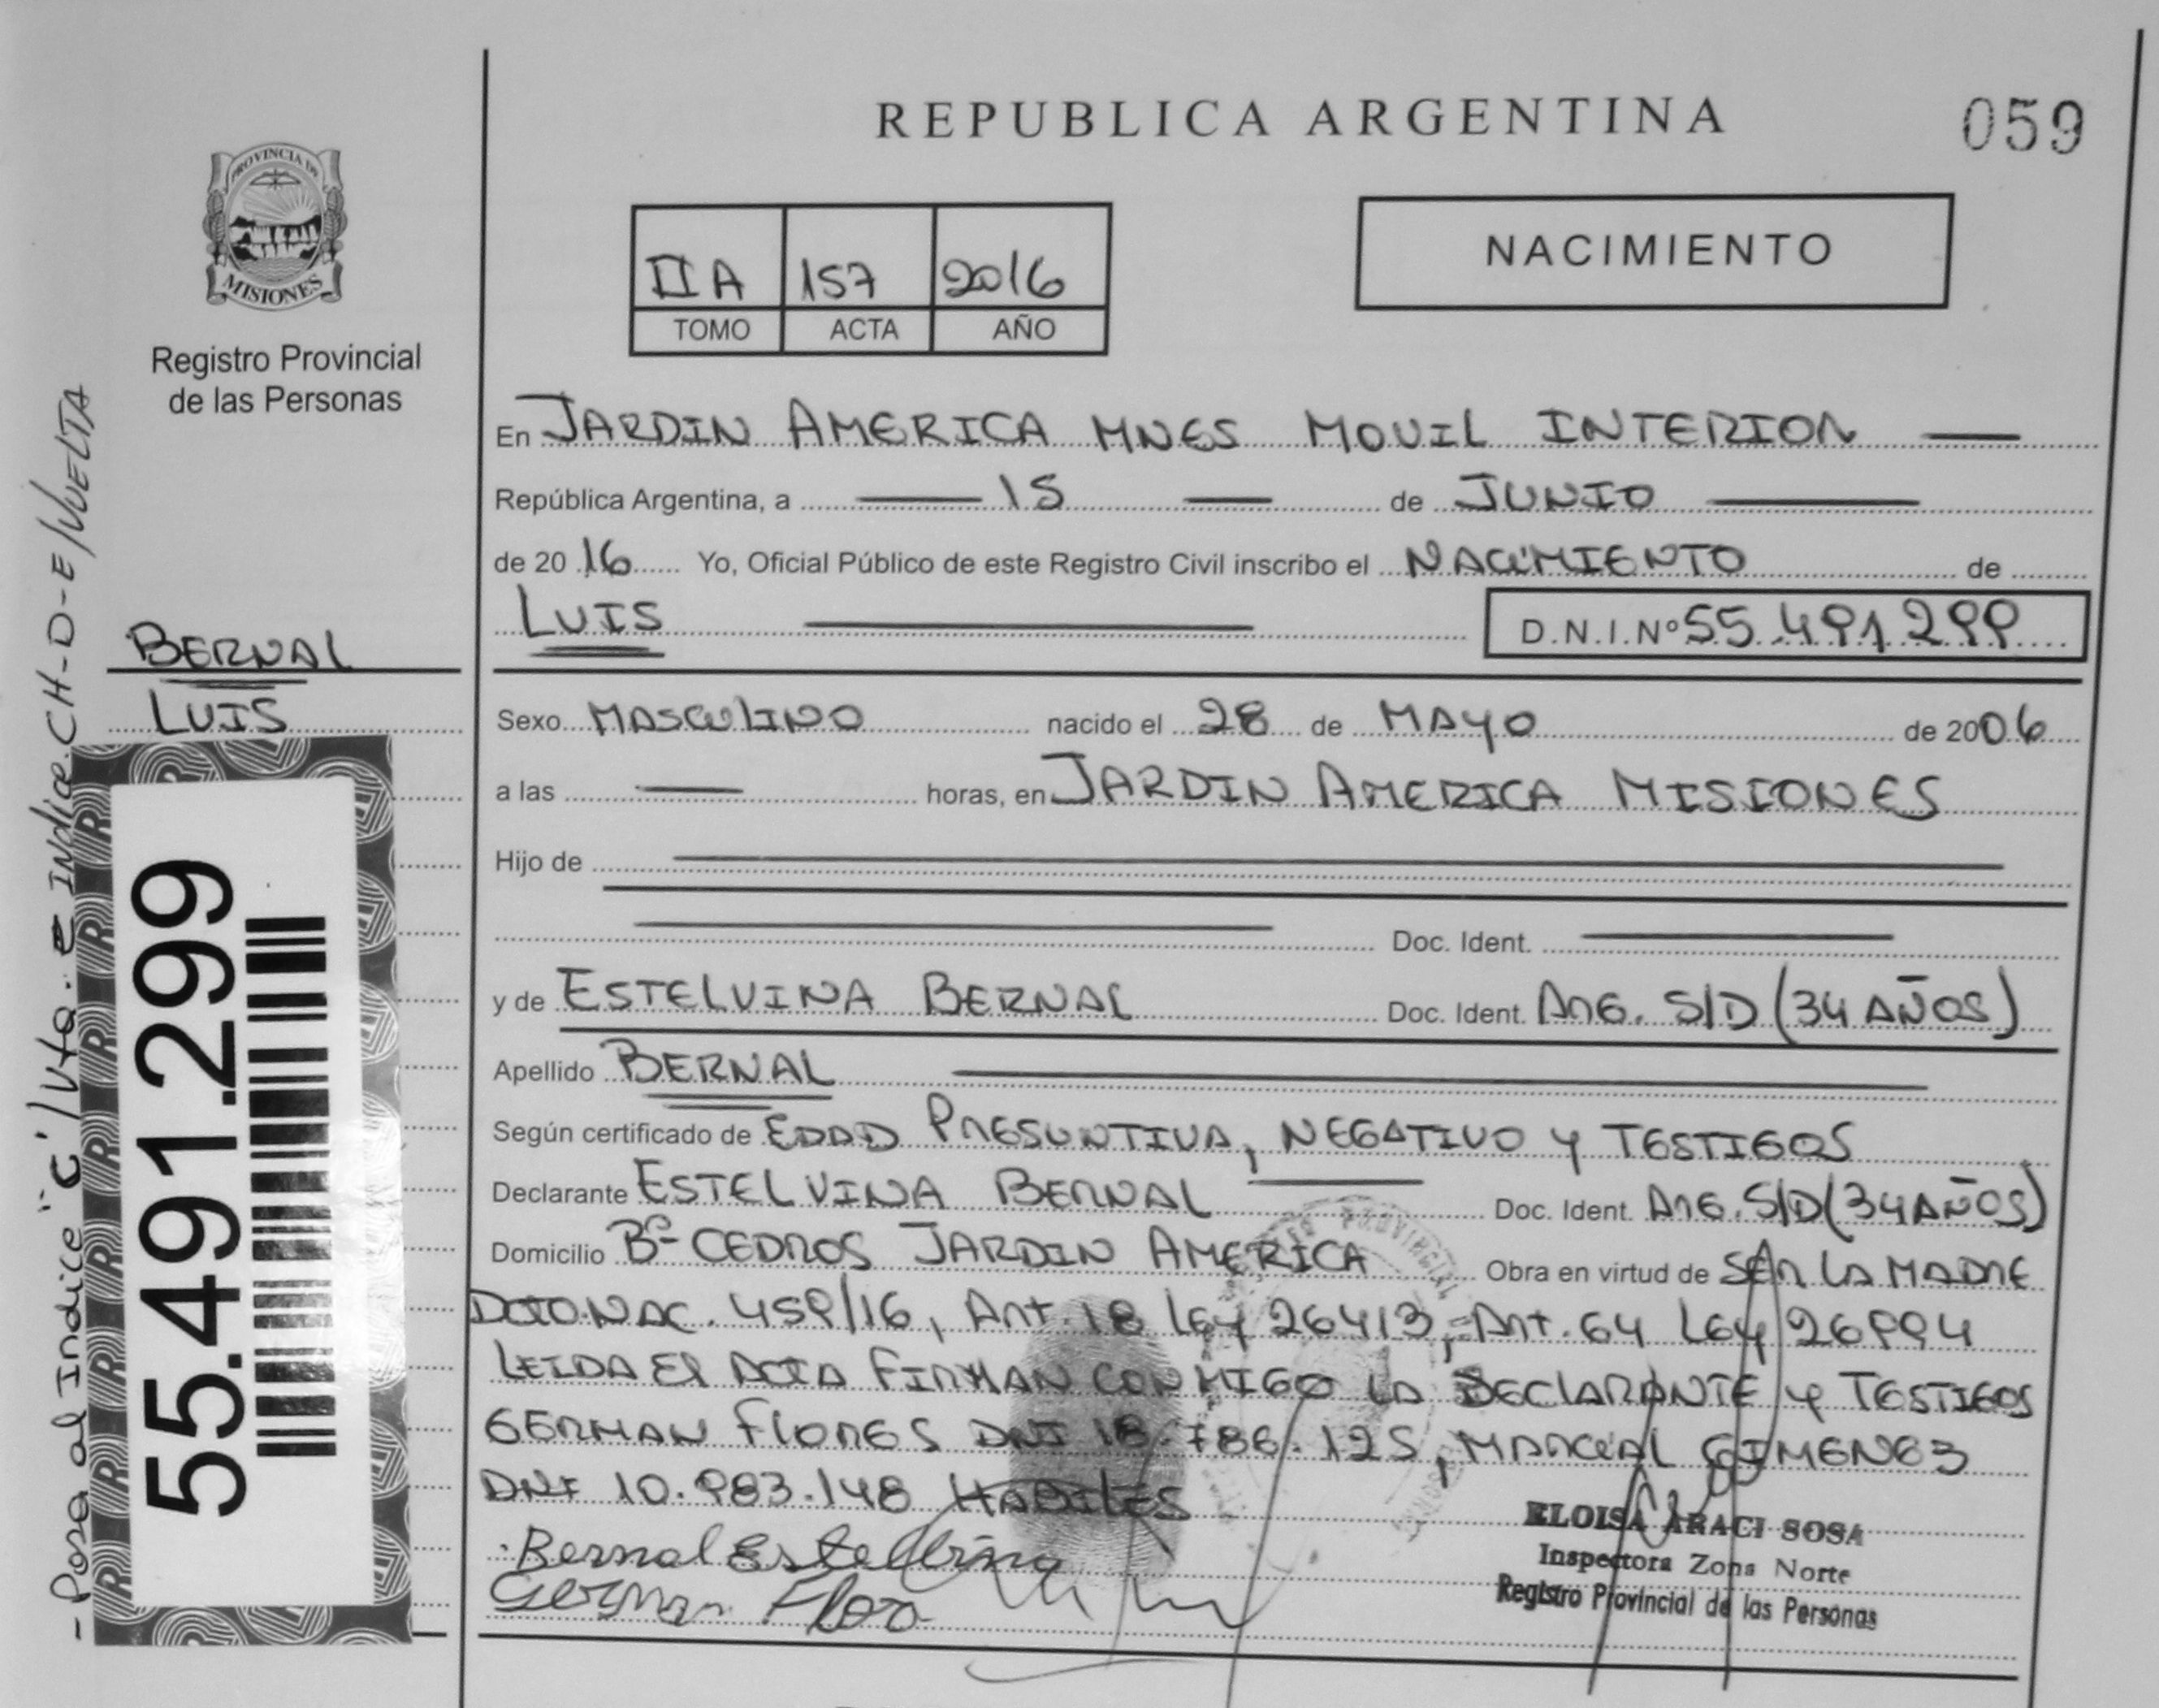 REPUBLICA ARGENTINA
059
PROVINCIA DE
MISIONES
Registro Provincial
de las Personas
IIA 157 2016
TOMO ACTA AÑO
NACIMIENTO
En JARDIN AMERICA MNES MOVIL INTERIOR
República Argentina, a 15 de JUNIO
de 2016 Yo, Oficial Público de este Registro Civil inscribo el NACIMIENTO de
LUIS D.N.I.Nº 55.491.299
BERNAL
LUIS
Sexo MASCULINO nacido el 28 de MAYO de 2006
a las horas, en JARDIN AMERICA MISIONES
Hijo de
Doc. Ident.
y de ESTELVINA BERNAL Doc. Ident. ARG. S/D (34 AÑOS)
Apellido BERNAL
Según certificado de EDAD PRESUNTIVA, NEGATIVO y TESTIGOS
Declarante ESTELVINA BERNAL Doc. Ident. ARG. S/D (34 AÑOS)
Domicilio Bº CEDROS JARDIN AMERICA Obra en virtud de SER LA MADRE
DCTO NAC. 459/16, Art. 18 Ley 26413, Art. 64 Ley 26994
LEIDA EL ACTA FIRMAN CONMIGO LA DECLARANTE y TESTIGOS
GERMAN FLORES DNI 18.786.125, MARCIAL GIMENEZ
DNI 10.983.148 HABILES
Bernal Estelbina
German Flor
ELOISA ARACI SOSA
Inspectora Zona Norte
Registro Provincial de las Personas
55.491.299
- Pasa al Indice "C"/Vta. e INdice. CH-D-E/VUELTA